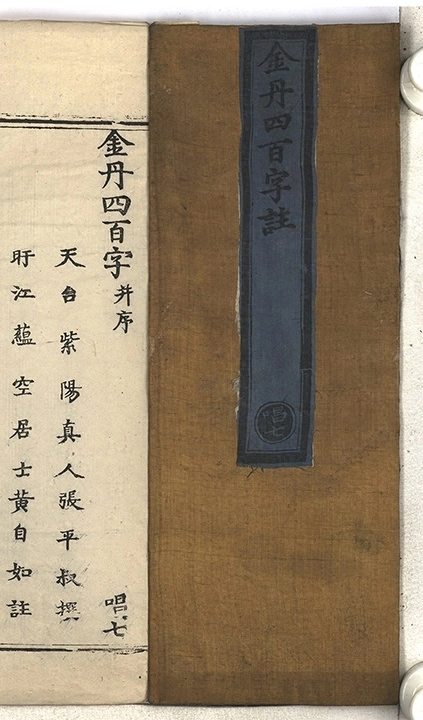 金丹四百字註
唱七
金丹四百字并序
唱七
天台紫陽真人張平叔撰
盱江蘊空居士黃自如註